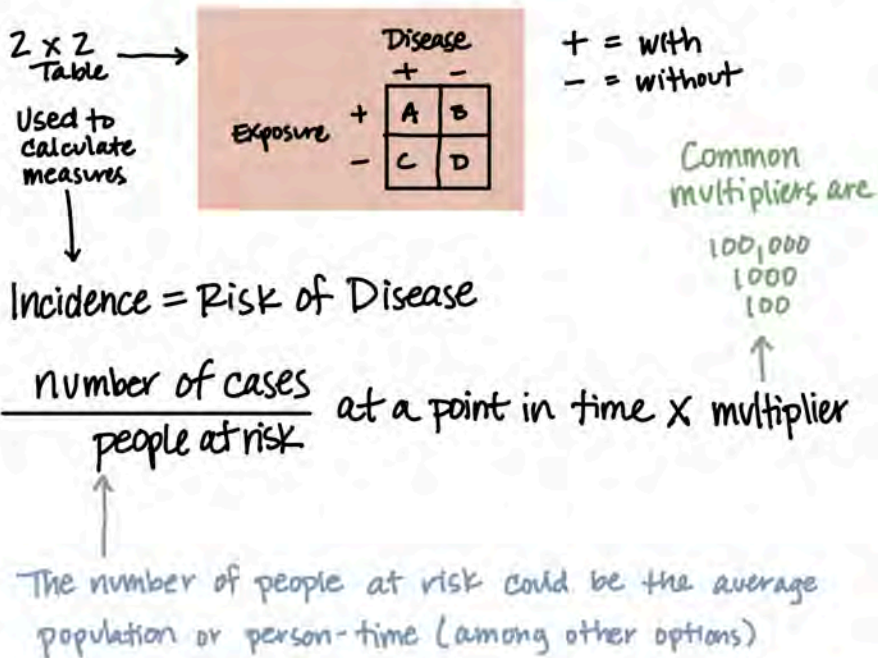 2 x 2
Table
Used to
calculate
measures
Disease
+ -
Exposure + A B
- C D
+ = with
- = without
Common
multipliers are
100,000
1000
100
Incidence = Risk of Disease
number of cases
people at risk
at a point in time x multiplier
The number of people at risk could be the average
population or person-time (among other options)